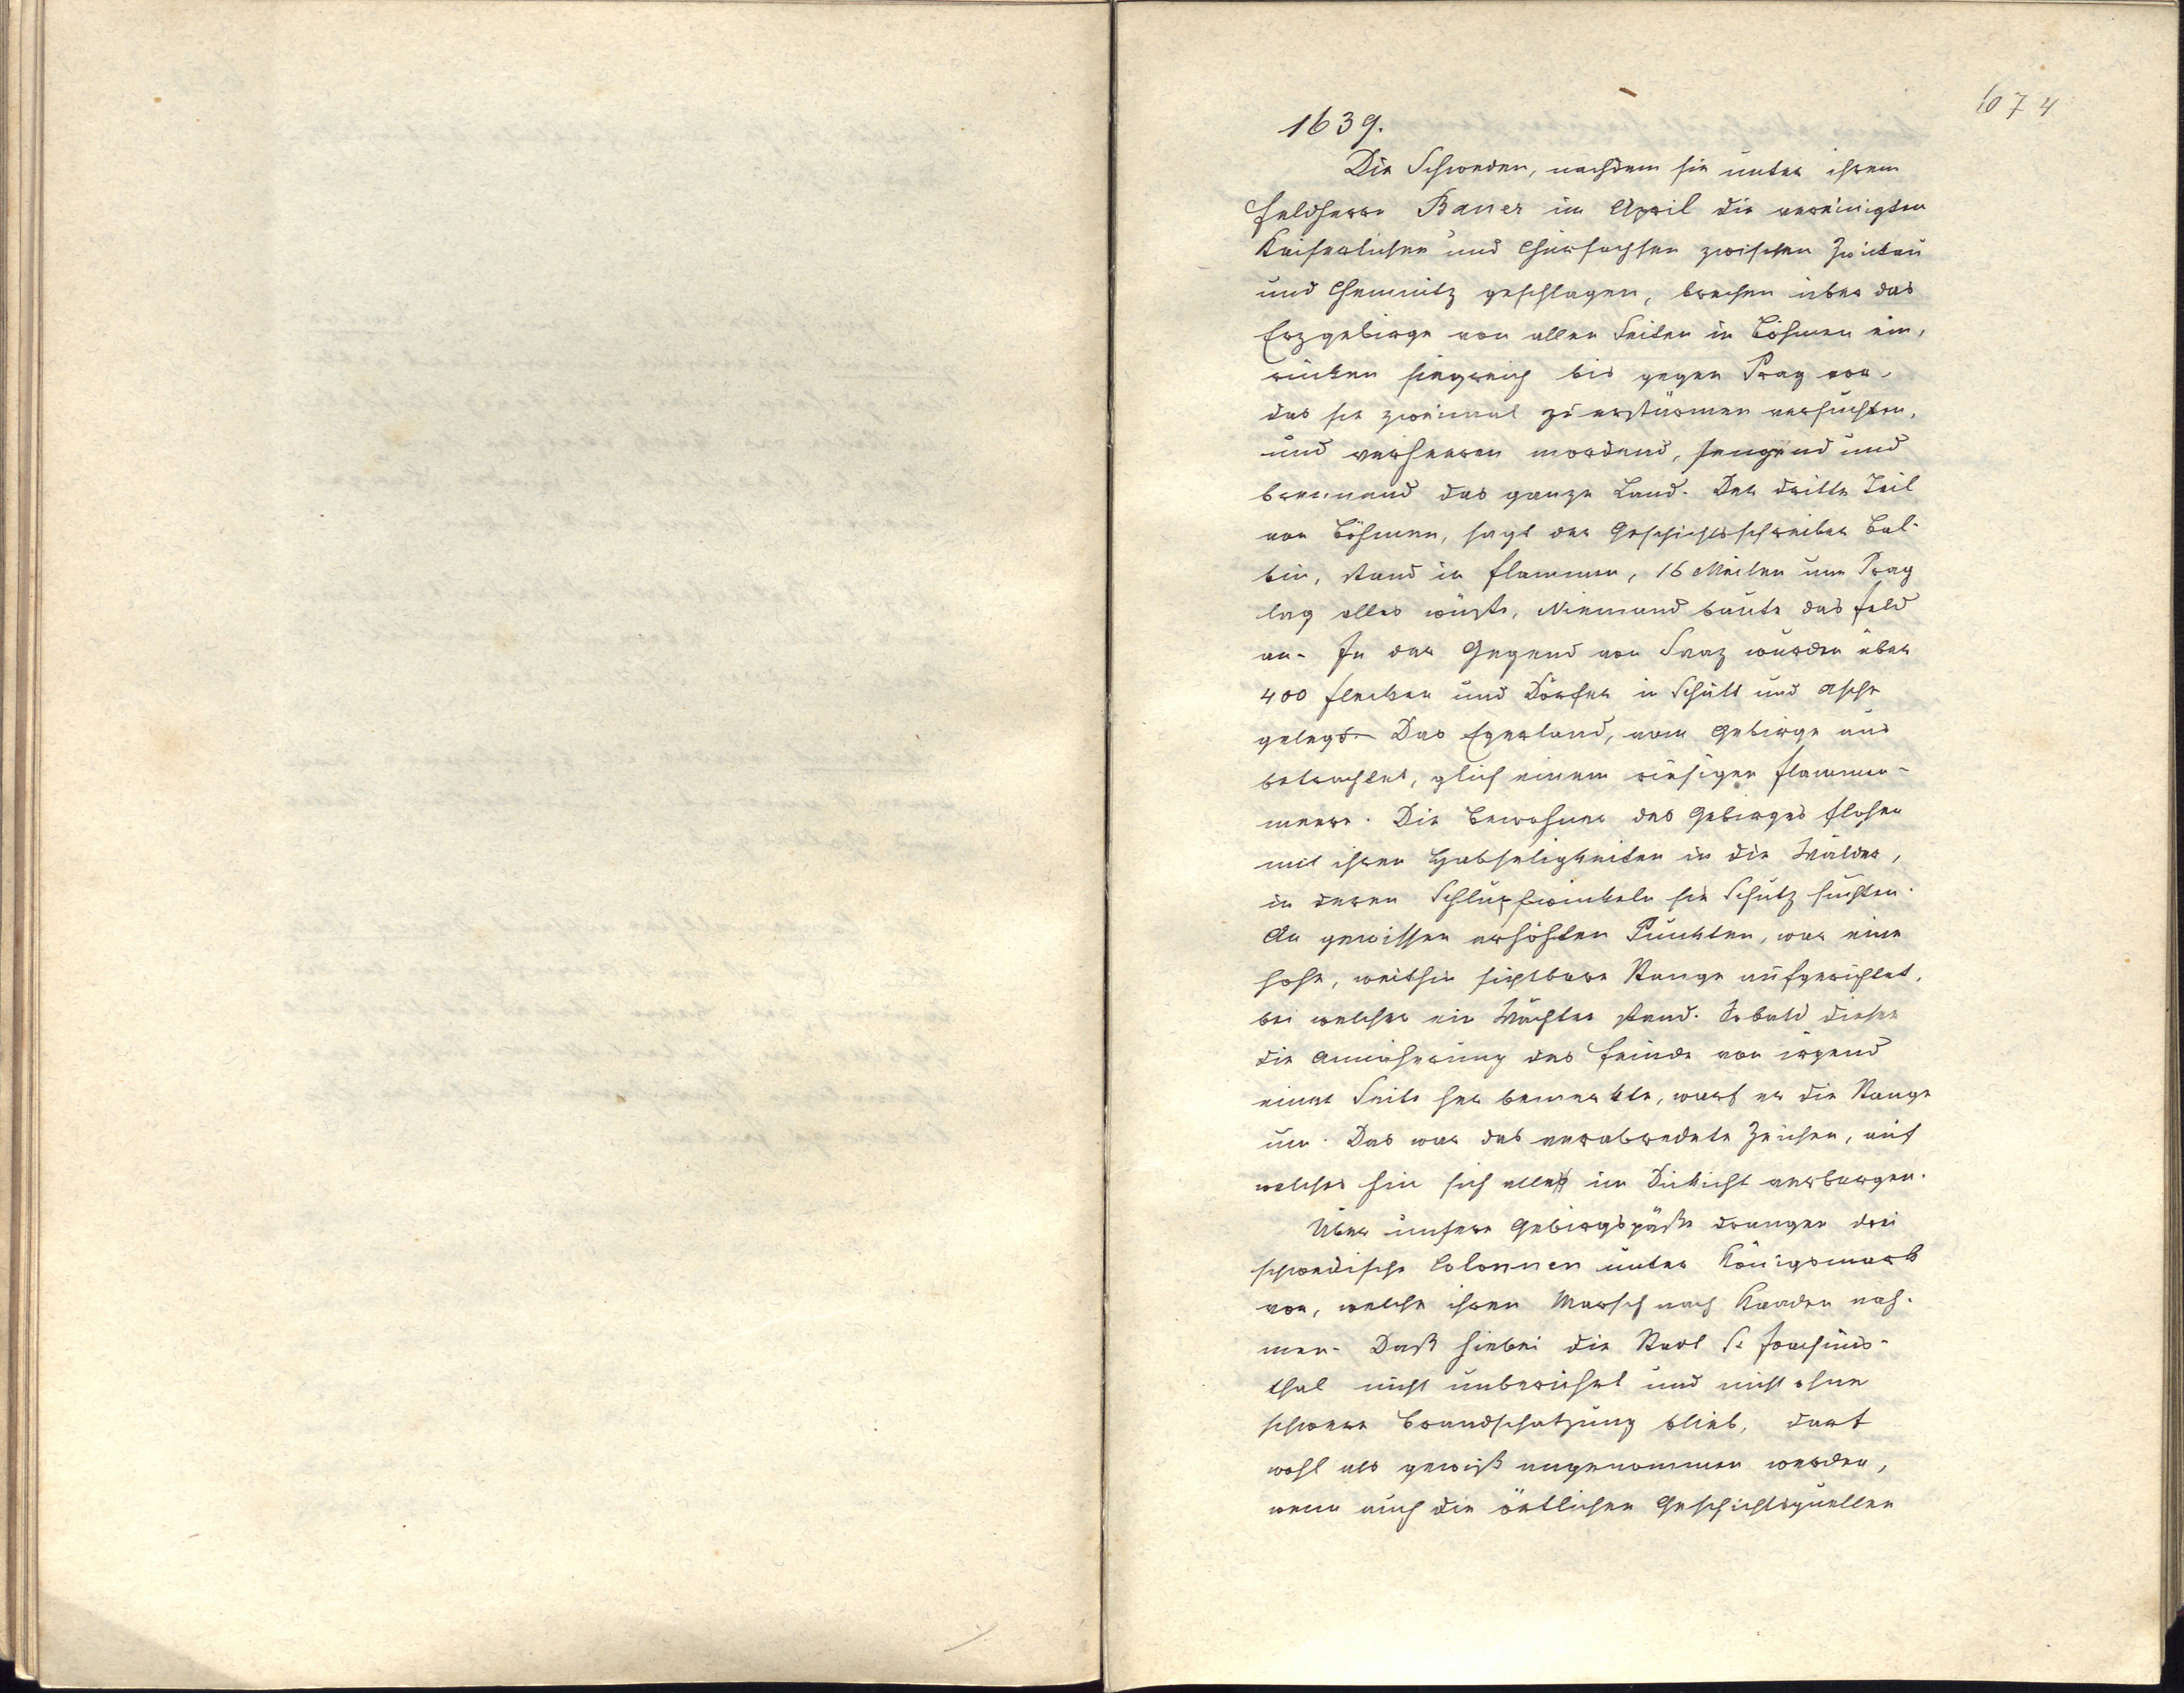 674
1639.
Die Schweden, nachdem sie unter ihrem
Feldherrn Baner im April die vereinigten
Kaiserlichen und Chursachsen zwischen Zwickau
und Chemnitz geschlagen, brechen über das
Erzgebirge von allen Seiten in Böhmen ein,
rücken siegreich bis gegen Prag vor,
das sie zweimal zu erstürmen versuchten,
und verheeren mordend, sengend und
brennend das ganze Land. Der dritte Teil
von Böhmen, sagt der Geschichtsschreiber Bal-
bin, stand in Flammen, 16 Meilen um Prag
lag alles wüste, Niemand baute das Feld
an. In der Gegend von Saaz wurden über
400 Flecken und Dörfer in Schutt und Asche
gelegt. Das Egerland, vom Gebirge aus
betrachtet, glich einem riesigen Flammen-
meere. Die Bewohner des Gebirges flohen
mit ihren Habseligkeiten in die Wälder,
in deren Schlupfwinkeln sie Schutz suchten.
An gewissen erhöhten Punkten, war eine
hohe, weithin sichtbare Stange aufgerichtet,
bei welcher ein Wächter stand. Sobald dieser
die Annäherung des Feinde von irgend
einer Seite her bemerkte, warf er die Stange
um. Das war das verabredete Zeichen, auf
welches hin sich alle im Dickicht verbargen.
Über unsere Gebirgspäße drangen drei
schwedische Colonnen unter Königsmark
vor, welche ihren Marsch nach Kaaden nah-
men. Daß hiebei die Stadt St Joachims-
thal nicht unberührt und nicht ohne
schwere Brandschatzung blieb, darf
wohl als gewiß angenommen werden,
wenn auch die örtlichen Geschichtsquellen